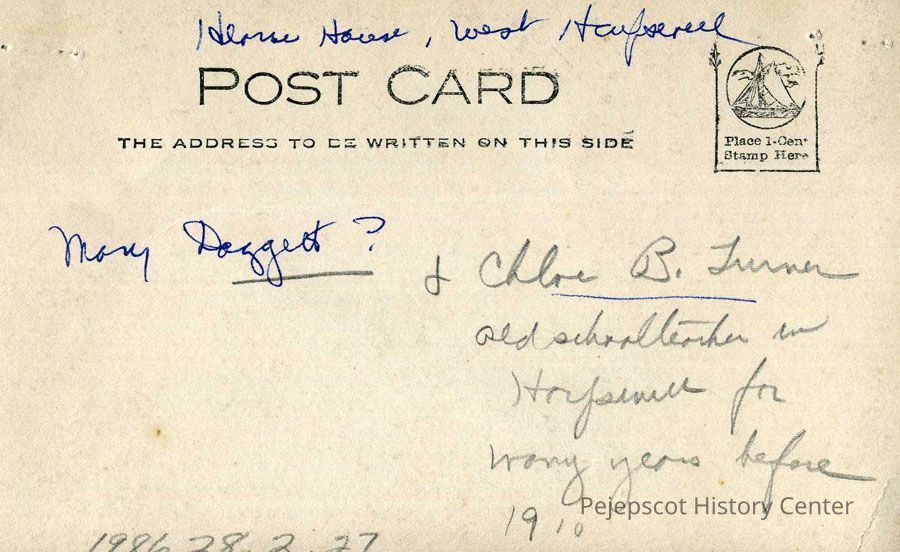 House, West Harpswell
POST CARD
THE ADDRESS TO BE WRITTEN ON THIS SIDE
Place 1-Cent
Stamp Here
Mary Daggett ?
& Chloe B. Turner
old schoolteacher in
Harpswell for
many years before
1910
Pejepscot History Center
1986.28.2.27